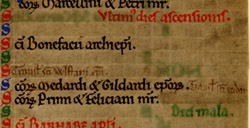 S cōꝝ Marcellini & Petri mr̄.
Vltim' dies ascensionis.
S c̄i Bonefacii archiep̄i.
S c̄oꝝ Medardi & Gildardi ep̄oꝝ.
S c̄oꝝ Primi & Feliciani mr̄.
Dies mala.
S c̄i BARNABE apl̄i.